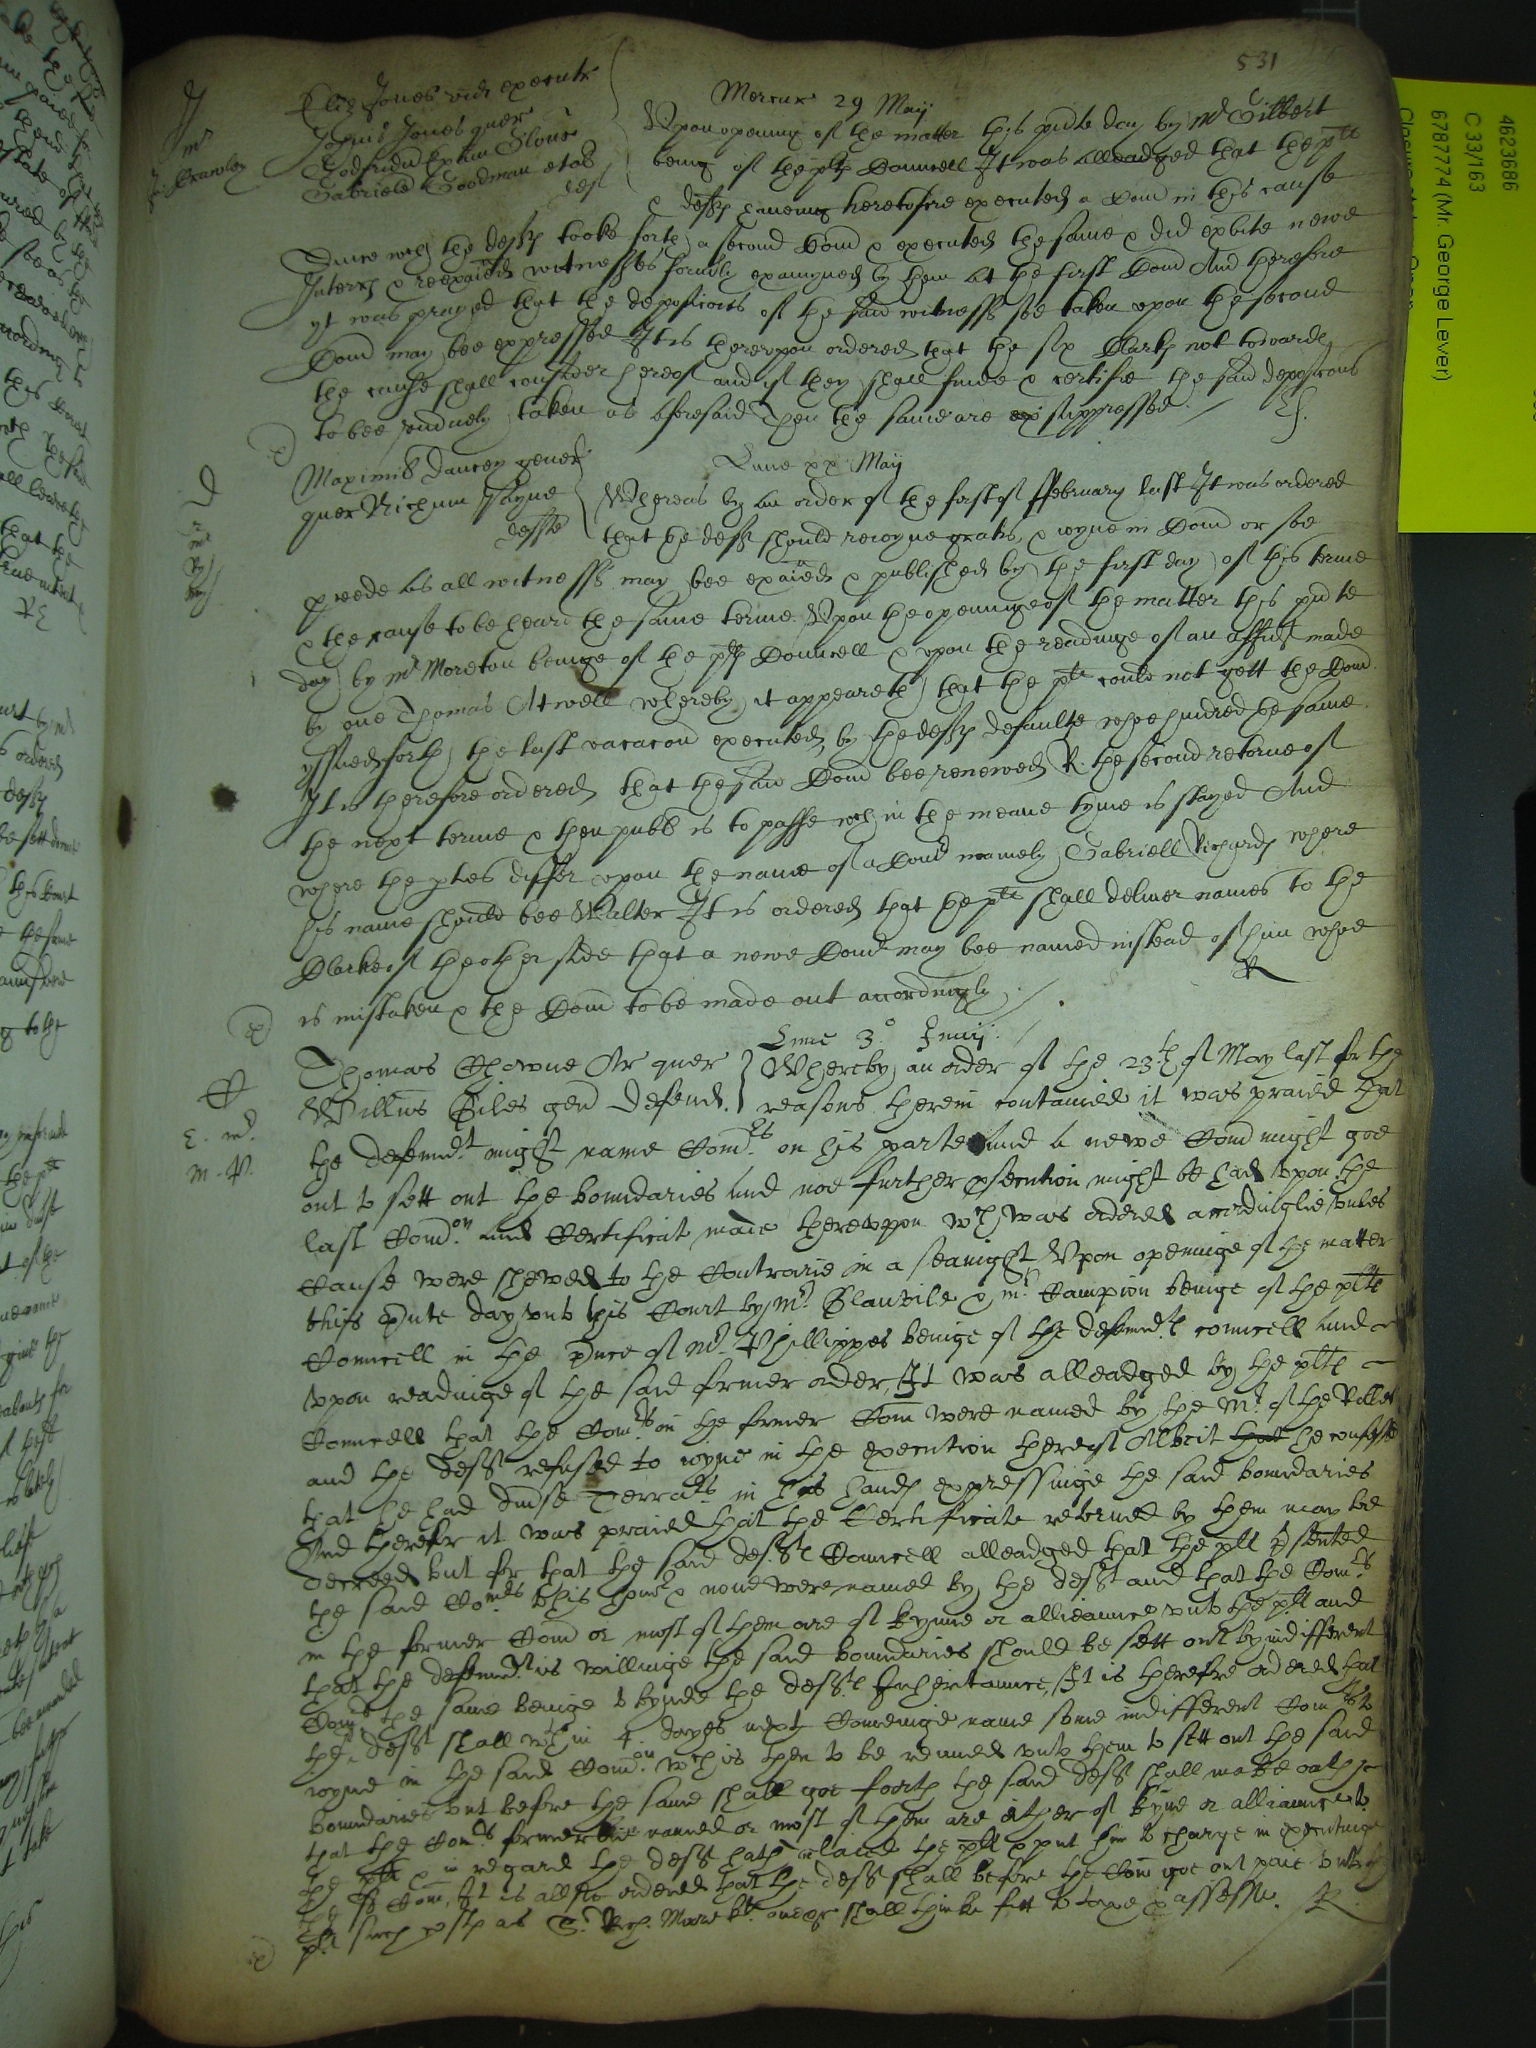 531
Mercur 29 Maij
Eliz Jones vid executr
Johnis Jones quer
Godfridu Epum Glouc
Gabriele Goodman et al
def
Vpon opening of the matter this pnte day by Mr Gilbert
being of the plt Councell It was alleadged that the plt
& defts haueing heretofore executed a Com in this cause
Since wch the defts tooke forth a second Com & executed the same & did exbite newe
Interr & reexaied witnesses formly examyned by them at the first Com And therefore
yt was prayed that the deposicons of the said witnesses soe taken vpon the second
Com may bee expressed It is therevpon ordered that the six Clarks not towards
the cause shall consider hereof and if they shall finde & certifie the said deposicons
to bee vnduely taken as aforesaid Then the same are suppressed
Lune xx Maij
Maximil Dancey gener
quer Richum Payne
defte
Whereas by an order of the first of ffebruary last It was ordered
that the deft should reioyne gratis & ioyne in Com or soe
pceede as all witnesses may bee exaied & published by the first day of this terme
& the cause to be heard the same terme. Vpon the openinge of the matter this pnte
day by Mr Moreton beinge of the plts Councell & vpon the readinge of an affidt made
by one Thomas Atwell whereby it appeareth that the plt could not gett the Com
yssued forth the last vacacon executed by the defts defaulte whoe hindred the same.
It is therefore ordered that the said Com bee renewed R. the second retorne of
the next terme & then publ is to passe wch in the meane tyme is stayed And
where the pties differ vpon the name of a Comr namely Gabriell Richards where
his name should bee Walter It is ordered that the plt shall deliuer names to the
Clarke of the other side that a newe Comr may bee named instead of him whoe
is mistaken & the Com to be made out accordingly
R
Lune 3° Junij
Thomas Chowne Ar quer
Willms Giles gen Defend.
Whereby an order of the 23th of May last for the
reasons therein contained it was praied that
the defendt might name Comrs on his parte and a newe Com might goe
out to sett out the boundaries and noe further psecution might be had vpon the
last Comon and Certificat made therevpon wch was ordered accordinglie vnles
Cause were shewed to the Contrarie in a seavnight Vpon openinge of the matter
this pnte day vnto this Court by Mr. Glanvile & Mr. Campion beinge of the plts
Councell in the pnce of Mr. Phillippes beinge of the defendts councell and
vpon readinge of the said former order, It was alleadged by the plts
Councell that the Comrs in the former Com were named by the Mr. of the Rolles
and the deft refused to ioyne in the execution thereof Albeit he confest
that he had diuse Terrars in his hands expressinge the said boundaries
And therefor it was praied that the Certificate retorned by them may be
decreed but for that the said defts Councell alleadged that the plt psented
the said Comrs & none were named by the deft and that the Comrs
in the former Com or most of them are of kynne or allieaunce vnto the plt and
that the defendt is willinge the said boundaries should be sett out by indifferent
Comrs the same beinge to bynde the defts Inheritaunce, It is therefore ordered that
the deft shall wthin 4 dayes next Comeinge name some indifferent Comrs to
ioyne in the said Comon wch is then to be renued vnto them to sett out the said
boundaries but before the same shall goe foorth the said deft shall make oathe
that the Comrs formerlie named or most of them are either of kyne or alliaunce to
the plt & in regard the deft hath delaied the plt & put him to charge in executinge
the sd Com, It is allsoe ordered that the deft shall before the Com goe out paie vnto the
plt such costs as Sr. Rich. Moore kt. one &c shall thinke fitt to taxe & assesse.
R
4623686
C 33/163
6787774 (Mr. George Lever)